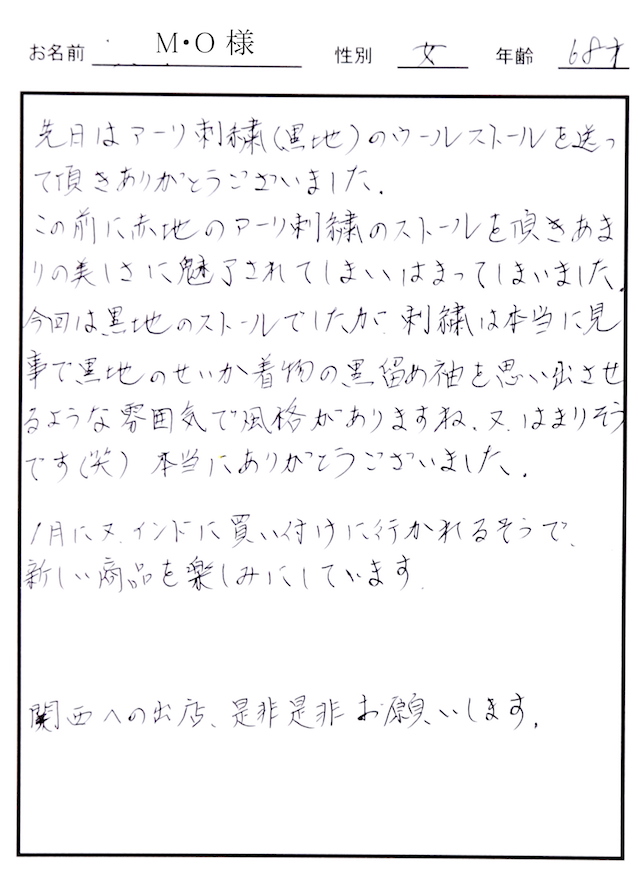 お名前 M・O 様 性別 女 年齢 68才
先日はアーリ刺繍(黒地)のウールストールを送っ
て頂きありがとうございました.
この前に赤地のアーリ刺繍のストールを頂きあま
りの美しさに魅了されてしまいはまってしまいました.
今回は黒地のストールでしたが、刺繍は本当に見
事で黒地のせいか着物の黒留め袖を思い出させ
るような雰囲気で風格がありますね、又、はまりそう
です(笑) 本当にありがとうございました.
1月に又、インドに買い付けに行かれるそうで、
新しい商品を楽しみにしています.
関西への出店、是非是非お願いします.